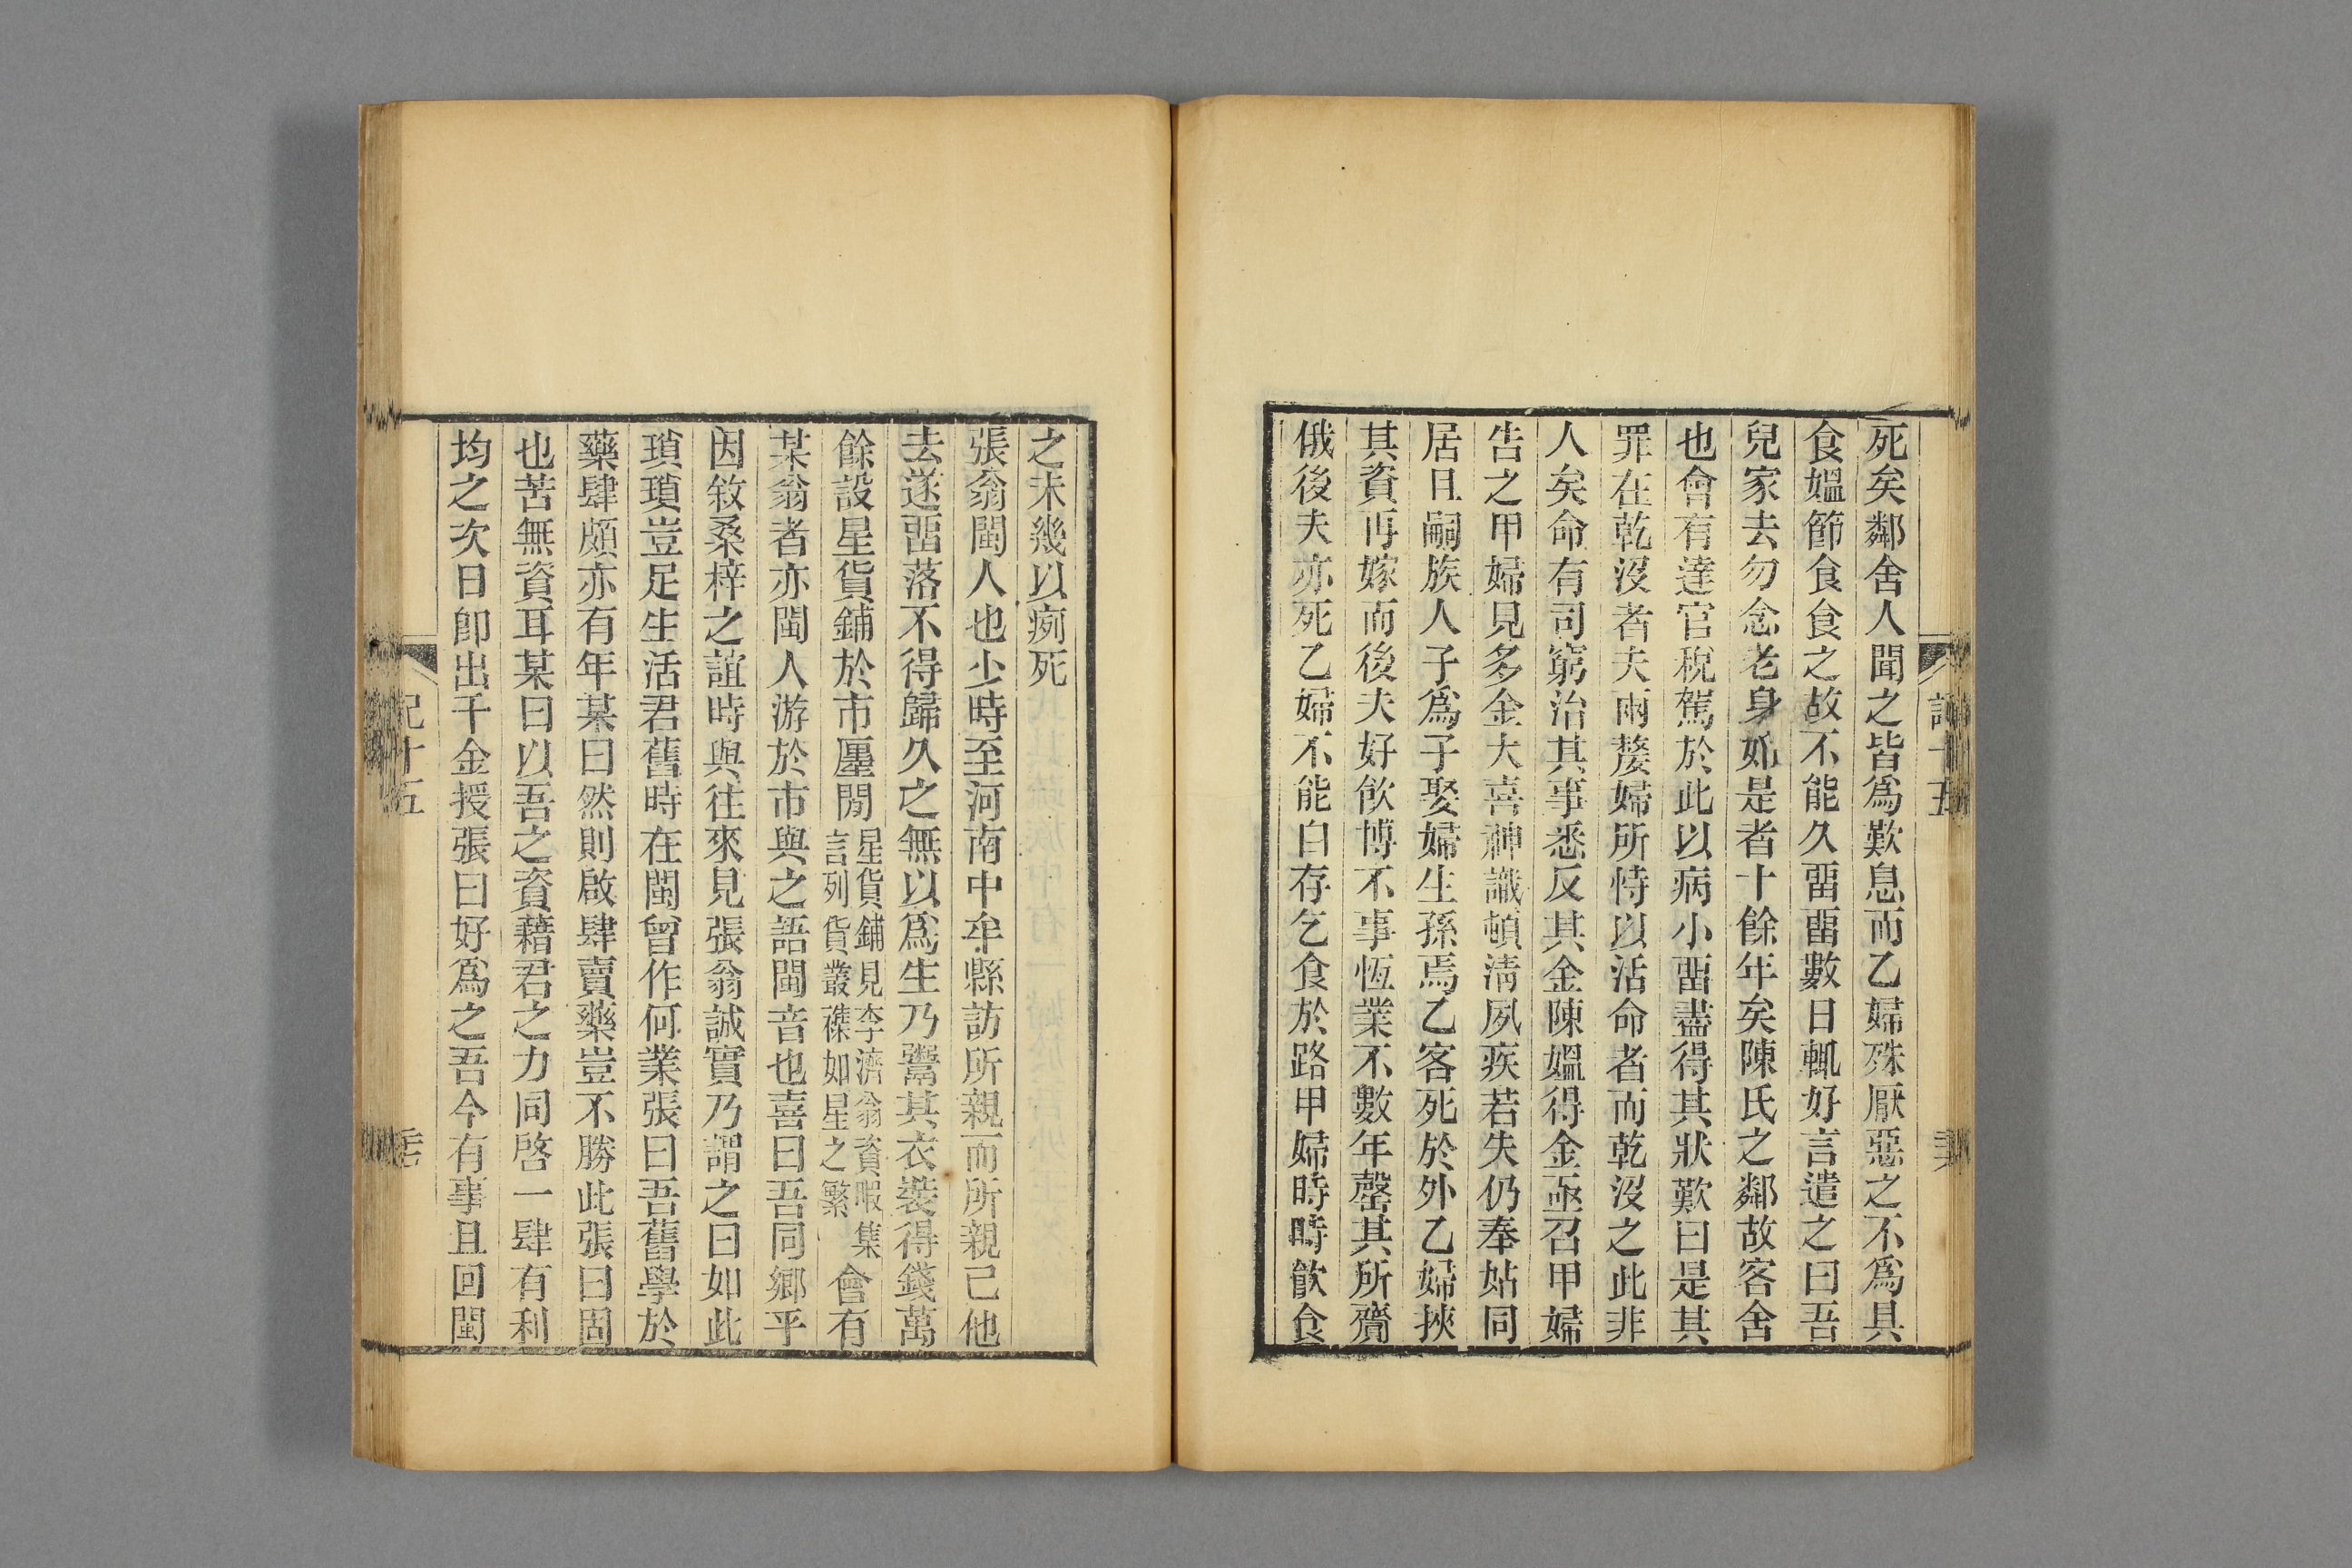 死矣鄰舍人聞之皆爲歎息而乙婦殊厭惡之不爲具
食媼節食食之故不能久畱畱數日輒好言遣之曰吾
兒家去勿念老身如是者十餘年矣陳氏之鄰故客舍
也會有達官稅駕於此以病小畱盡得其狀歎曰是其
罪在乾沒者夫兩嫠婦所恃以活命者而乾沒之此非
人矣命有司窮治其事悉反其金陳媼得金亟召甲婦
告之甲婦見多金大喜神識頓淸夙疾若失仍奉姑同
居且嗣族人子爲子娶婦生孫焉乙客死於外乙婦挾
其資再嫁而後夫好飮博不事恆業不數年罄其所齎
俄後夫亦死乙婦不能自存乞食於路甲婦時時飮食
之未幾以痾死
張翁閩人也少時至河南中牟縣訪所親而所親已他
去遂畱落不得歸久之無以爲生乃鬻其衣裝得錢萬
餘設星貨鋪於市廛閒星貨鋪見李濟翁資暇集言列貨叢襍如星之繁會有
某翁者亦閩人游於市與之語閩音也喜曰吾同鄉乎
因敘桑梓之誼時與往來見張翁誠實乃謂之曰如此
瑣瑣豈足生活君舊時在閩曾作何業張曰吾舊學於
藥肆頗亦有年某曰然則啟肆賣藥豈不勝此張曰固
也苦無資耳某曰以吾之資藉君之力同啓一肆有利
均之次日卽出千金授張曰好爲之吾今有事且回閩
記十五